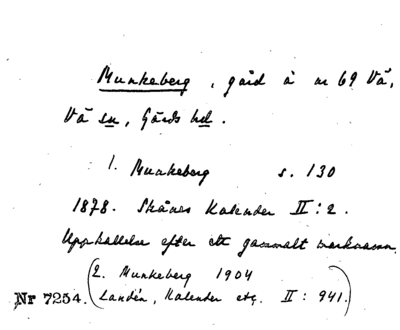 Munkeberg, gård å nr 69 Vä,
Vä sn, Gärds hd.
1. Munkeberg s. 130
1878. Skånes Kalender II: 2.
Uppkallelse efter ett gammalt marknamn.
(2. Munkeberg 1904
Nr 7254. Landén, Kalender etc. II: 941.)